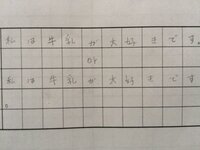 私は牛乳が大好きです。
or
私は牛乳が大好きです
。